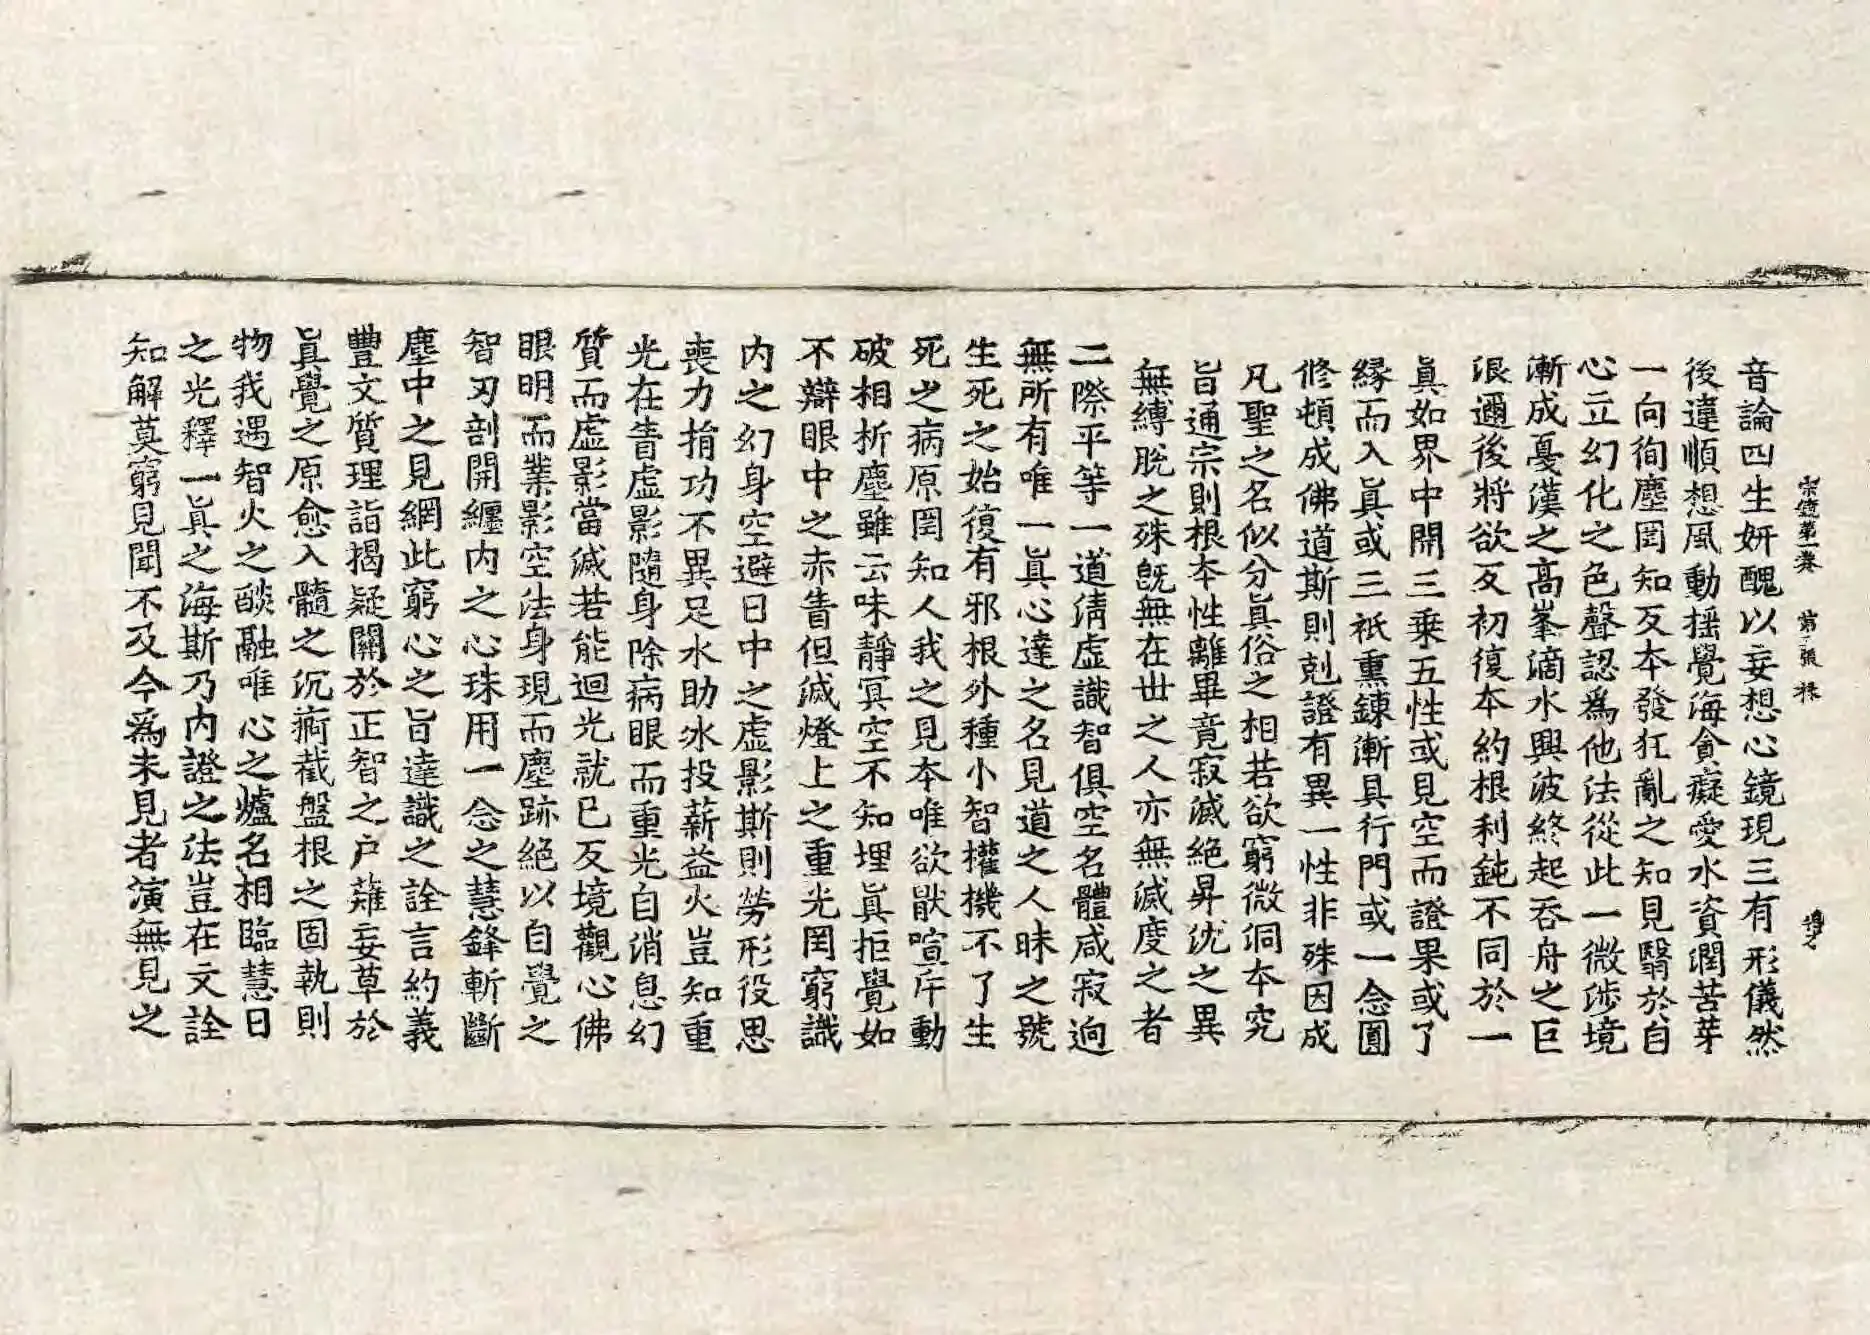 宗鏡第一卷 第二張 祿
音論四生妍醜以妄想心鏡現三有形儀然
後違順想風動揺覺海貪癡愛水資潤苦芽
一向徇塵罔知反本發狂亂之知見翳於自
心立幻化之色聲認為他法從此一微涉境
漸成戛漢之髙峯滴水興波終起吞舟之巨
浪邇後將欲反初復本約根利鈍不同於一
眞如界中開三乗五性或見空而證果或了
縁而入眞或三祇熏鍊漸具行門或一念圓
修頓成佛道斯則剋證有異一性非殊因成
凡聖之名似分眞俗之相若欲窮微洞本究
旨通宗則根本性離畢竟寂滅絶昇沈之異
無縛脫之殊旣無在世之人亦無滅度之者
二際平等一道清虚識智俱空名體咸寂迥
無所有唯一眞心達之名見道之人昧之號
生死之始復有邪根外種小智權機不了生
死之病原罔知人我之見本唯欲猒喧斥動
破相析塵雖云味靜冥空不知埋眞拒覺如
不辯眼中之赤眚但滅燈上之重光罔窮識
内之幻身空避日中之虚影斯則勞形役思
喪力捐功不異足水助氷投薪益火豈知重
光在眚虚影隨身除病眼而重光自消息幻
質而虚影當滅若能迴光就已反境觀心佛
眼明而業影空法身現而塵跡絶以自覺之
智刃剖開纏内之心珠用一念之慧鋒斬斷
塵中之見網此窮心之旨達識之詮言約義
豐文質理詣揭疑關於正智之户薙妄草於
眞覺之原愈入髓之沉痾截盤根之固執則
物我遇智火之焰融唯心之爐名相臨慧日
之光釋一眞之海斯乃内證之法豈在文詮
知解莫窮見聞不及今為未見者演無見之